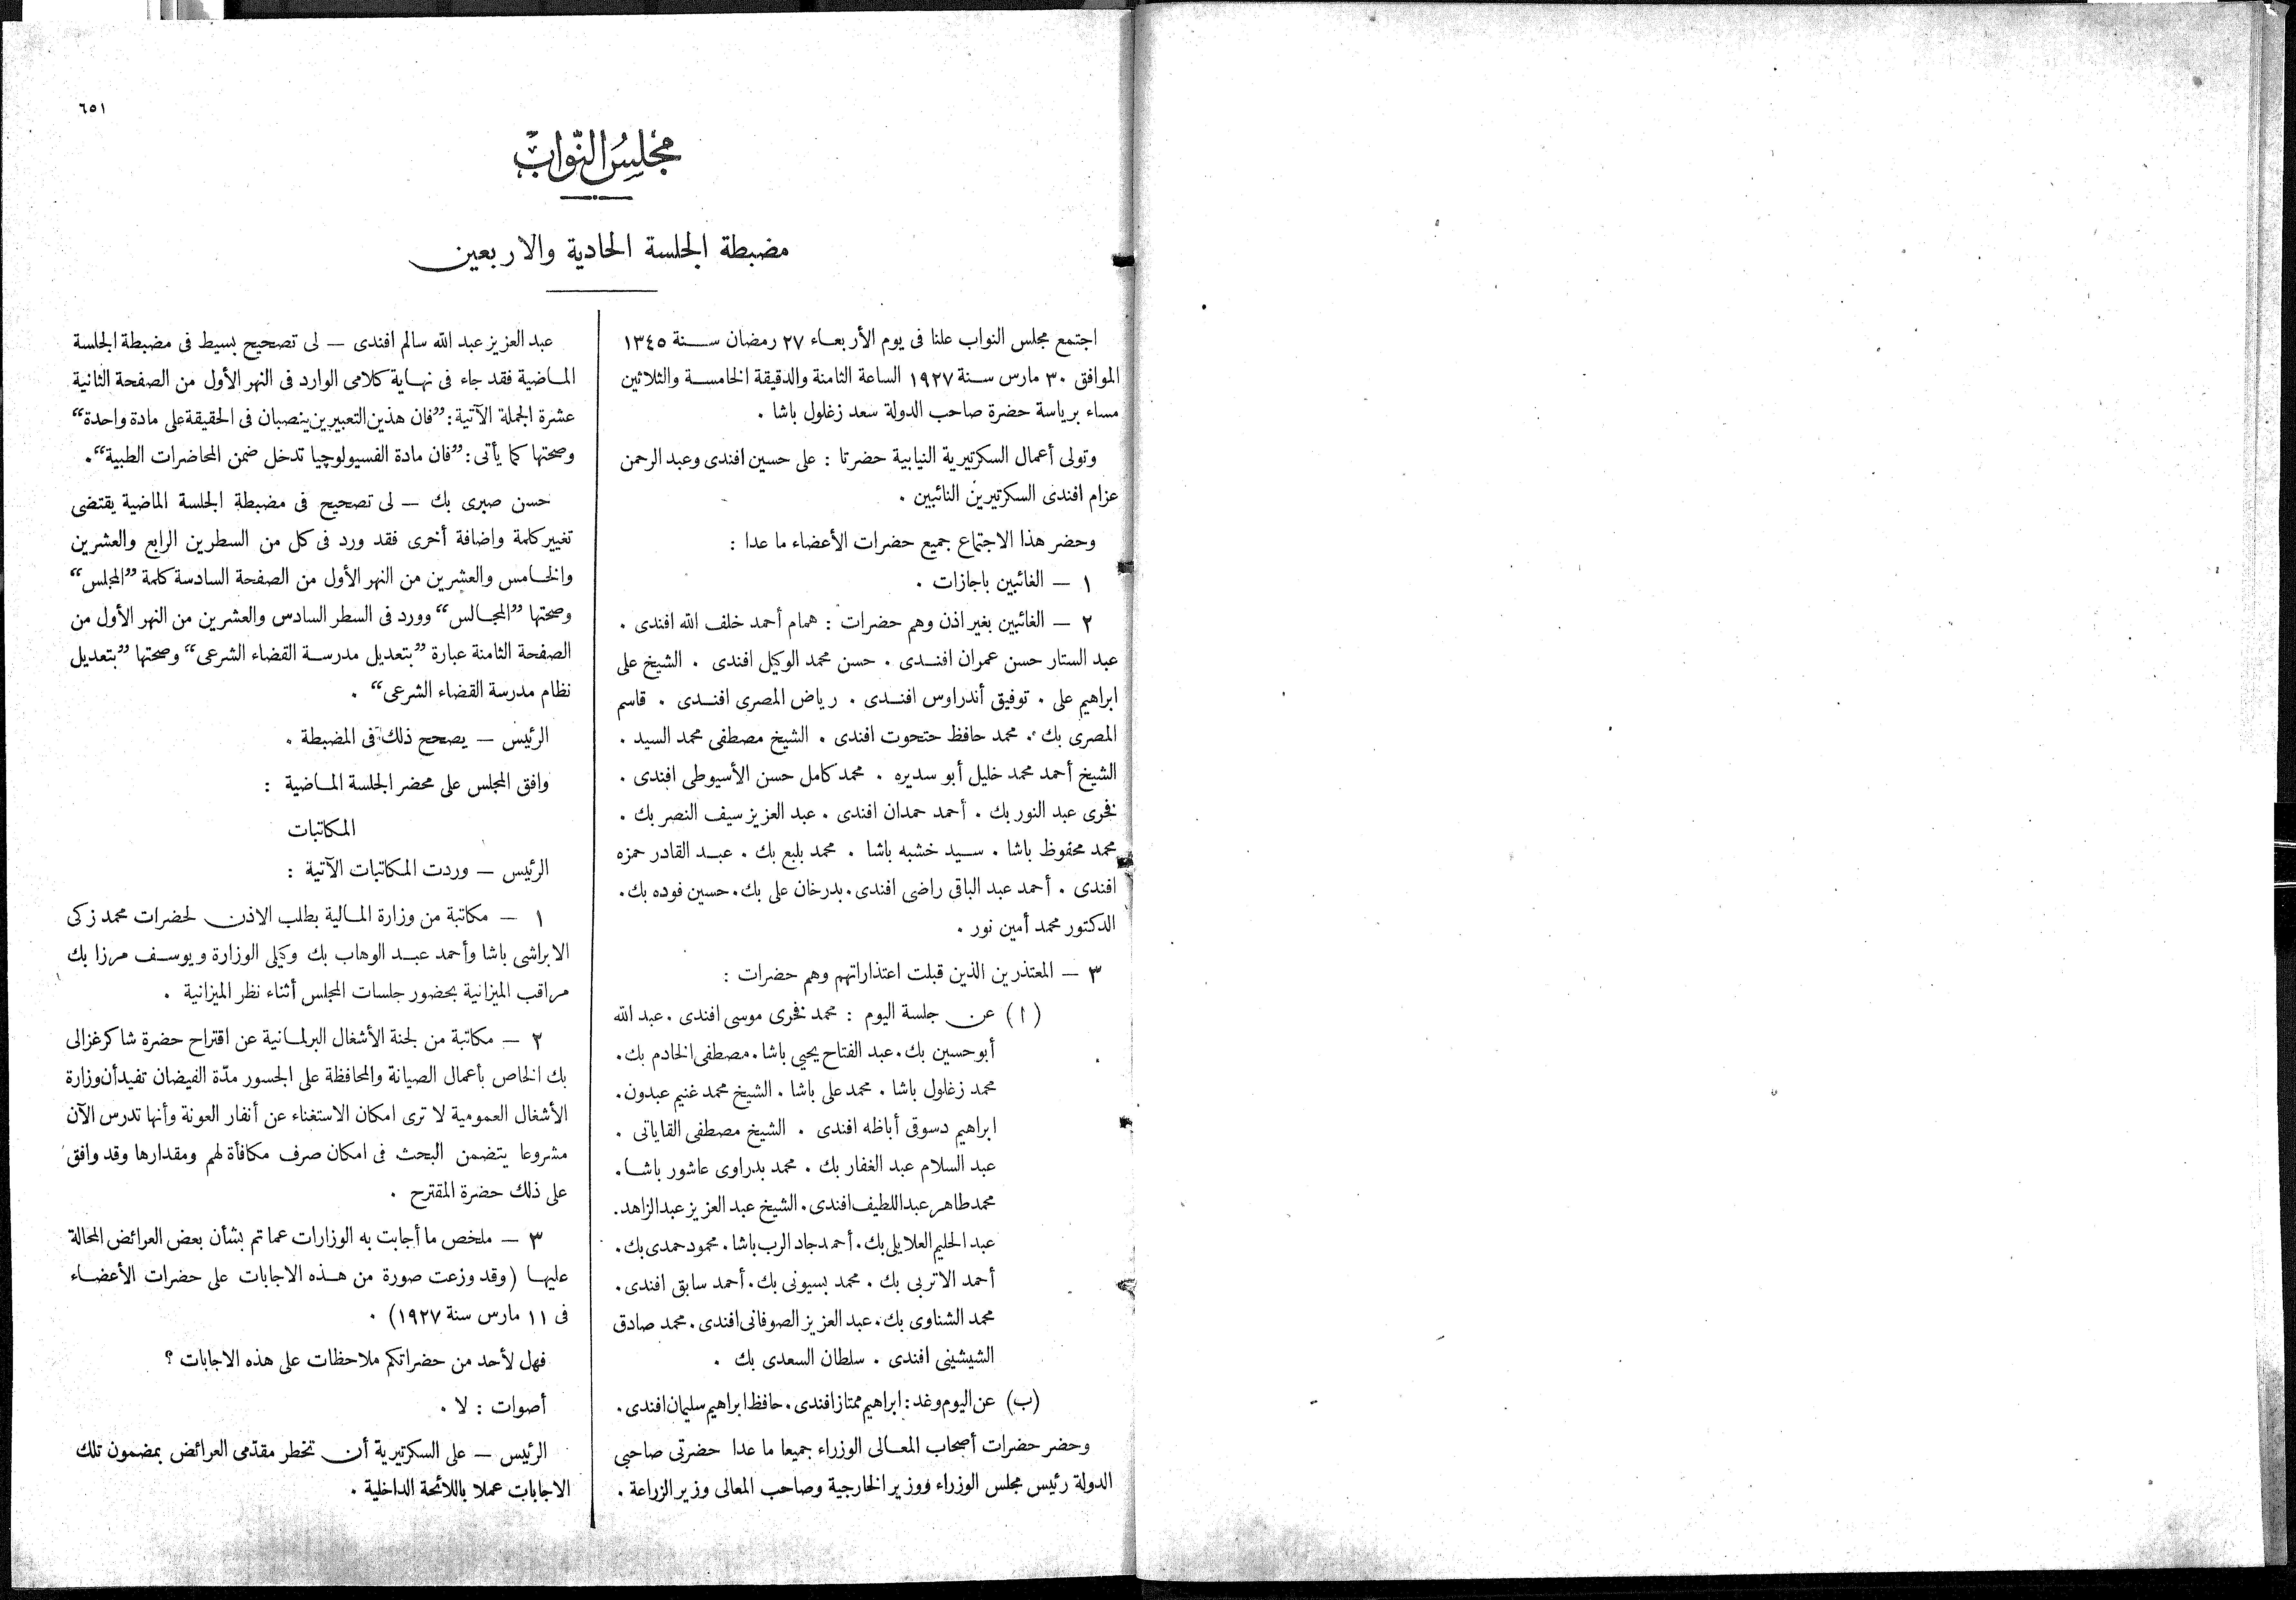 ٦٥١
مجلس النواب
مضبطة الجلسة الحادية والاربعين
اجتمع مجلس النواب علنا فى يوم الأربعاء ٢٧ رمضان سنة ١٣٤٥
الموافق ٣٠ مارس سنة ١٩٢٧ الساعة الثامنة والدقيقة الخامسة والثلاثين
مساء برياسة حضرة صاحب الدولة سعد زغلول باشا .
وتولى أعمال السكرتيرية النيابية حضرتا : على حسين افندى وعبد الرحمن
عزام افندى السكرتيرين النائبين .
وحضر هذا الاجتماع جميع حضرات الأعضاء ما عدا :
١ — الغائبين باجازات .
٢ — الغائبين بغير اذن وهم حضرات : همام أحمد خلف الله افندى .
عبد الستار حسن عمران افندى . حسن محمد الوكيل افندى . الشيخ على
ابراهيم على . توفيق أندراوس افندى . رياض المصرى افندى . قاسم
المصرى بك . محمد حافظ حتحوت افندى . الشيخ مصطفى محمد السيد .
الشيخ أحمد محمد خليل أبو سديره . محمد كامل حسن الأسيوطى افندى .
فخرى عبد النور بك . أحمد حمدان افندى . عبد العزيز سيف النصر بك .
محمد محفوظ باشا . سيد خشبه باشا . محمد بلبع بك . عبد القادر حمزه
افندى . أحمد عبد الباقى راضى افندى . بدرخان على بك . حسين فوده بك .
الدكتور محمد أمين نور .
٣ — المعتذرين الذين قبلت اعتذاراتهم وهم حضرات :
(ا) عن جلسة اليوم : محمد فخرى موسى افندى . عبد الله
أبو حسين بك . عبد الفتاح يحيى باشا . مصطفى الخادم بك .
محمد زغلول باشا . محمد على باشا . الشيخ محمد غنيم عبدون .
ابراهيم دسوقى أباظه افندى . الشيخ مصطفى القاياتى .
عبد السلام عبد الغفار بك . محمد بدراوى عاشور باشا .
محمد طاهر عبد اللطيف افندى . الشيخ عبد العزيز عبد الزاهد .
عبد الحليم العلايلى بك . أحمد جاد الرب باشا . محمود حمدى بك .
أحمد الاتربى بك . محمد بسيونى بك . أحمد سابق افندى .
محمد الشناوى بك . عبد العزيز الصوفانى افندى . محمد صادق
الشيشينى افندى . سلطان السعدى بك .
(ب) عن اليوم وغد : ابراهيم ممتاز افندى . حافظ ابراهيم سليمان افندى .
وحضر حضرات أصحاب المعالى الوزراء جميعا ما عدا حضرتى صاحبى
الدولة رئيس مجلس الوزراء ووزير الخارجية وصاحب المعالى وزير الزراعة .
عبد العزيز عبد الله سالم افندى — لى تصحيح بسيط فى مضبطة الجلسة
الماضية فقد جاء فى نهاية كلامى الوارد فى النهر الأول من الصفحة الثانية
عشرة الجملة الآتية : ”فان هذين التعبيرين ينصبان فى الحقيقة على مادة واحدة“
وصحتها كما يأتى : ”فان مادة الفسيولوچيا تدخل ضمن المحاضرات الطبية“ .
حسن صبرى بك — لى تصحيح فى مضبطة الجلسة الماضية يقتضى
تغيير كلمة واضافة أخرى فقد ورد فى كل من السطرين الرابع والعشرين
والخامس والعشرين من النهر الأول من الصفحة السادسة كلمة ”المجلس“
وصحتها ”المجالس“ وورد فى السطر السادس والعشرين من النهر الأول من
الصفحة الثامنة عبارة ”بتعديل مدرسة القضاء الشرعى“ وصحتها ”بتعديل
نظام مدرسة القضاء الشرعى“ .
الرئيس — يصحح ذلك فى المضبطة .
وافق المجلس على محضر الجلسة الماضية :
المكاتبات
الرئيس — وردت المكاتبات الآتية :
١ — مكاتبة من وزارة المالية بطلب الاذن لحضرات محمد زكى
الابراشى باشا وأحمد عبد الوهاب بك وكيلى الوزارة ويوسف مرزا بك
مراقب الميزانية بحضور جلسات المجلس أثناء نظر الميزانية .
٢ — مكاتبة من لجنة الأشغال البرلمانية عن اقتراح حضرة شاكر غزالى
بك الخاص بأعمال الصيانة والمحافظة على الجسور مدّة الفيضان تفيد أن وزارة
الأشغال العمومية لا ترى امكان الاستغناء عن أنفار العونة وأنها تدرس الآن
مشروعا يتضمن البحث فى امكان صرف مكافأة لهم ومقدارها وقد وافق
على ذلك حضرة المقترح .
٣ — ملخص ما أجابت به الوزارات عما تم بشأن بعض العرائض المحالة
عليها (وقد وزعت صورة من هذه الاجابات على حضرات الأعضاء
فى ١١ مارس سنة ١٩٢٧) .
فهل لأحد من حضراتكم ملاحظات على هذه الاجابات ؟
أصوات : لا .
الرئيس — على السكرتيرية أن تخطر مقدّمى العرائض بمضمون تلك
الاجابات عملا باللائحة الداخلية .